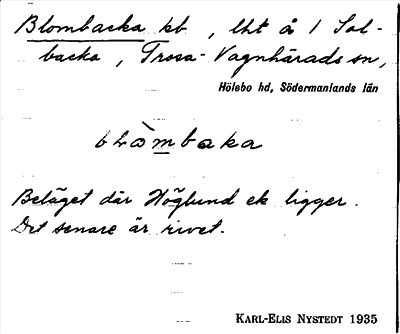 Blombacka kb, lht å 1 Sol-
backa, Trosa-Vagnhärads sn,
Hölebo hd, Södermanlands län
blòmbaka
Beläget där Höglund ek ligger.
Det senare är rivet.
KARL-ELIS NYSTEDT 1935